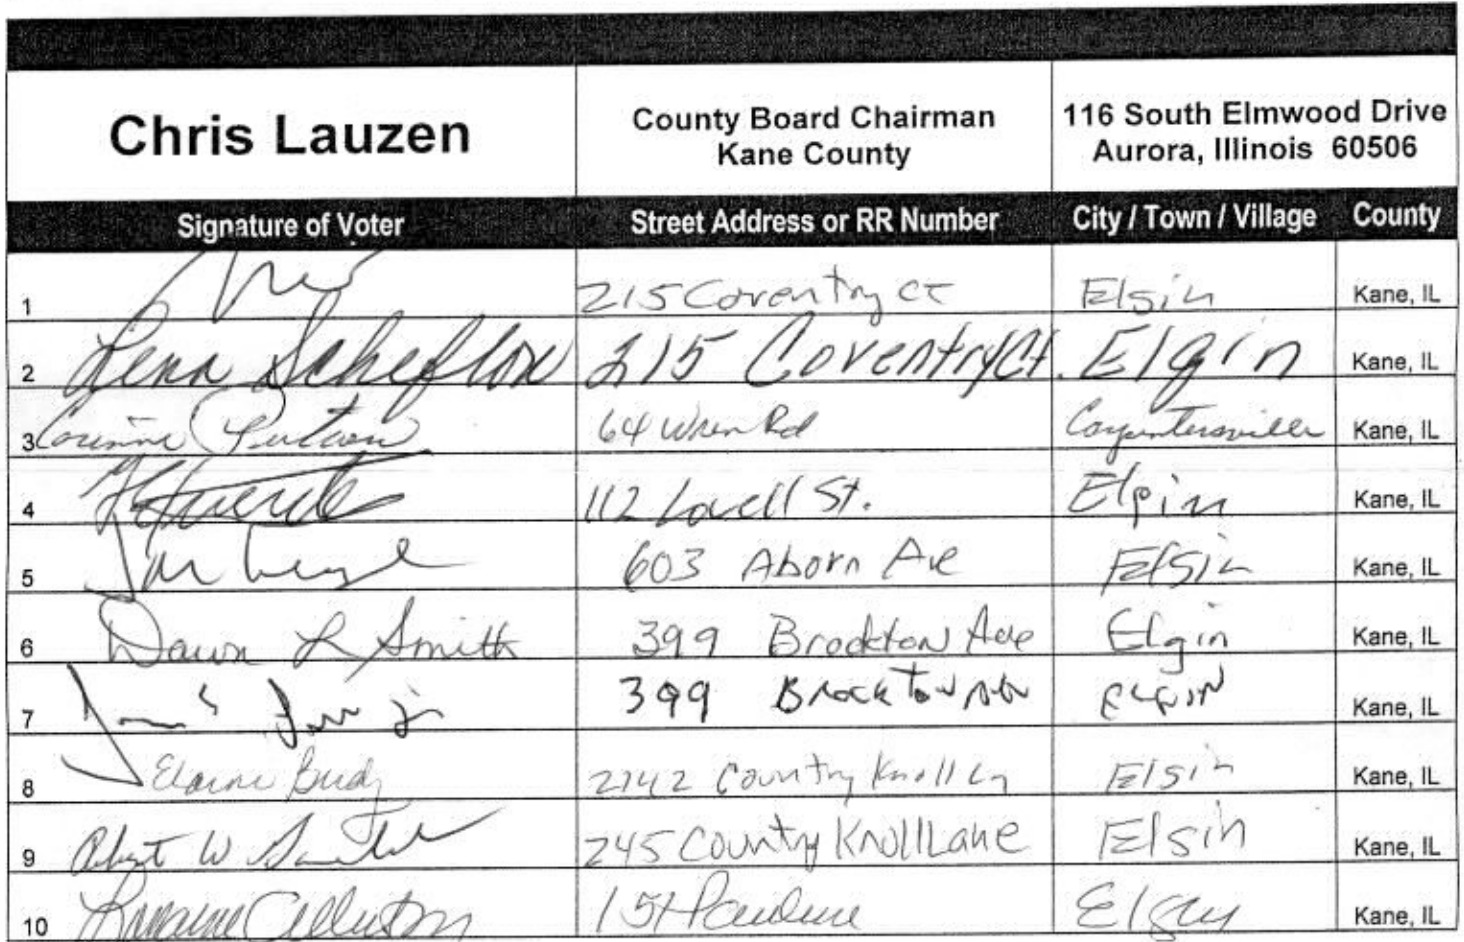 Chris Lauzen
County Board Chairman
Kane County
116 South Elmwood Drive
Aurora, Illinois 60506
Signature of Voter Street Address or RR Number City / Town / Village County
1 215 Coventry Ct Elgin Kane, IL
2 Lena Scheflow 215 Coventry Ct. Elgin Kane, IL
3 Corinne 64 Wren Rd Carpentersville Kane, IL
4 112 Lovell St. Elgin Kane, IL
5 603 Aborn Ave Elgin Kane, IL
6 Dawn L Smith 399 Brockton Ave Elgin Kane, IL
7 399 Brockton Ave Elgin Kane, IL
8 Elaine 2742 Country Knoll Ln Elgin Kane, IL
9 W 245 Country Knoll Lane Elgin Kane, IL
10 Elgin Kane, IL